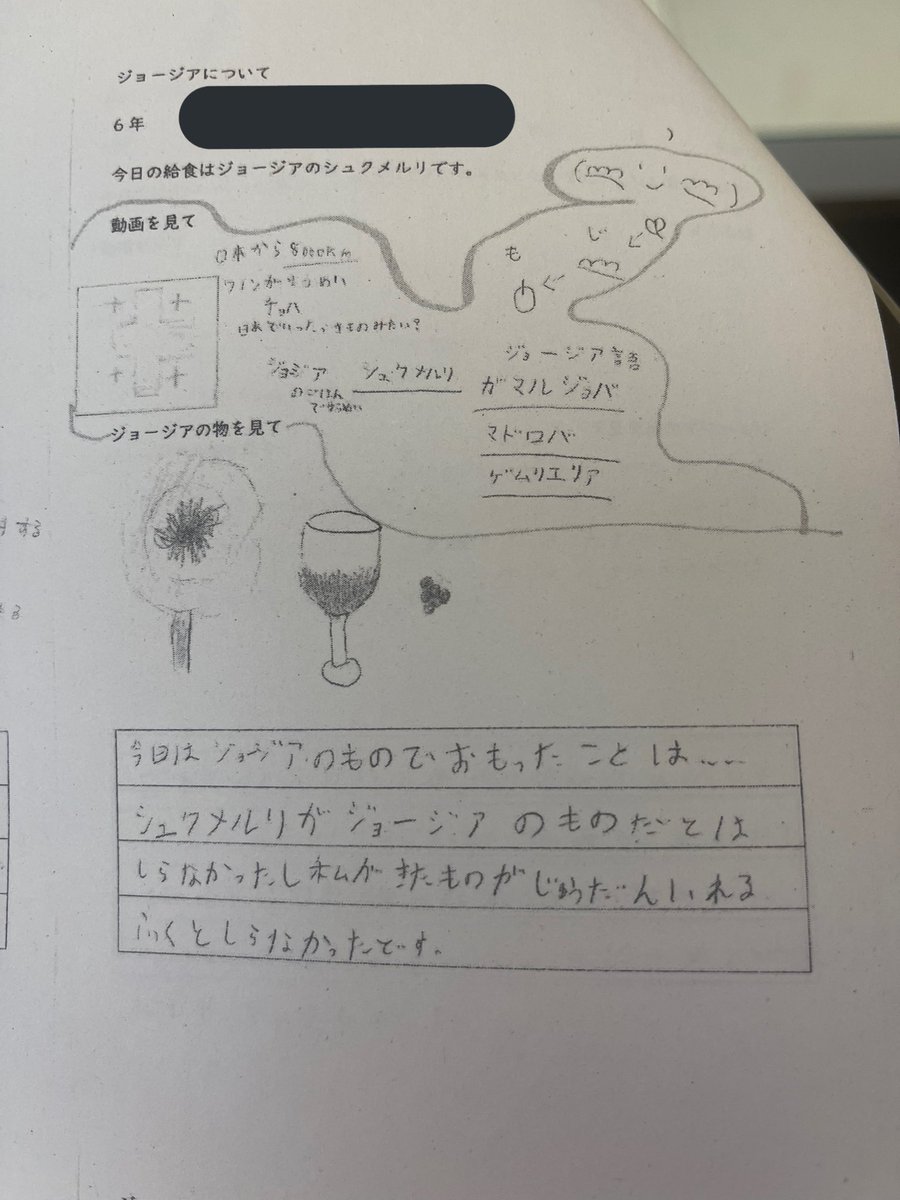 ジョージアについて
6年
今日の給食はジョージアのシュクメルリです。
動画を見て
日本から8000Km
ワインがゆうめい
チョハ
日本でいったらきものみたい?
ジョジア
のごはん
でゆうめい
シュクメルリ
も
じ
ジョージア語
ガマルジョバ
マドロバ
ゲムリエリア
ジョージアの物を見て
今日はジョージアのものでおもったことは……
シュクメルリがジョージアのものだとは
しらなかったし私がきたものがじゅうだんいれる
ふくとしらなかったです。